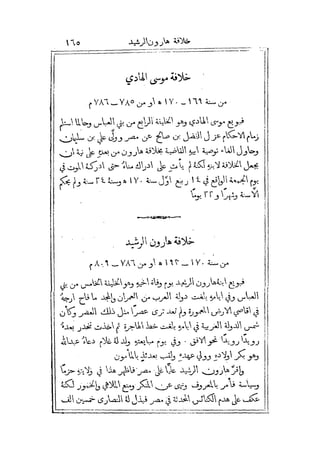 خلافة هارون الرشيد ١٦٥
خلافة موسى الهادي
من سنة ١٦٩ — ١٧٠ ه او من ٧٨٥ — ٧٨٦ م
فبويع موسى الهادي وهو الخليفة الرابع من بني العباس وحالما استلم
زمام الاحكام عزل الفضل بن صالح عن مصر وولَّى علي بن سليمان
وحاول الغاء توصية ابيه القاضية بخلافة هارون من بعدهِ على نية ان
يجعل الخلافة لابنه لكنهُ لم يأتِ على ادراك مناهُ حتى ادركهُ الموت في
يوم الجمعة الواقع في ١٤ ربيع اوّل سنة ١٧٠ ه وسنهُ ٢٤ سنة ولم يحكم
الَّا سنة وشهرًا و ٢٢ يومًا
خلافة هارون الرشيد
من سنة ١٧٠ — ١٩٣ ه او من ٧٨٦ — ٨٠٩ م
فبويع هارون الرشيد يوم وفاة اخيهِ وهو الخليفة الخامس من بني
العباس وفي ايامهِ بلغت دولة العرب من العمران والمجد ما فاح ارجهُ
في اقاصي الارض المعمورة ولم تعد ترى عصرًا مثل ذلك العصر وكأن
شمس الدولة العربية في ايامهِ بلغت خط الهاجرة ثم اخذت تنحدر بعدهُ
رويدًا رويدًا نحو الافق. وفي يوم مبايعتهِ ولد لهُ غلام دعاهُ عبد الله
وهو بكر اولادهِ وولي عهدهِ ولقب بعدئذٍ بالمأمون
واقرَّ هارون الرشيد عليًّا على مصر فاظهر هذا في ولايتهِ حزمًا
وسياسة فأمر بالمعروف ونهى عن المنكر ومنع الملاهي والخمور لكنهُ
عكف على هدم الكنائس المحدثة في مصر فبذل لهُ النصارى خمسين الف